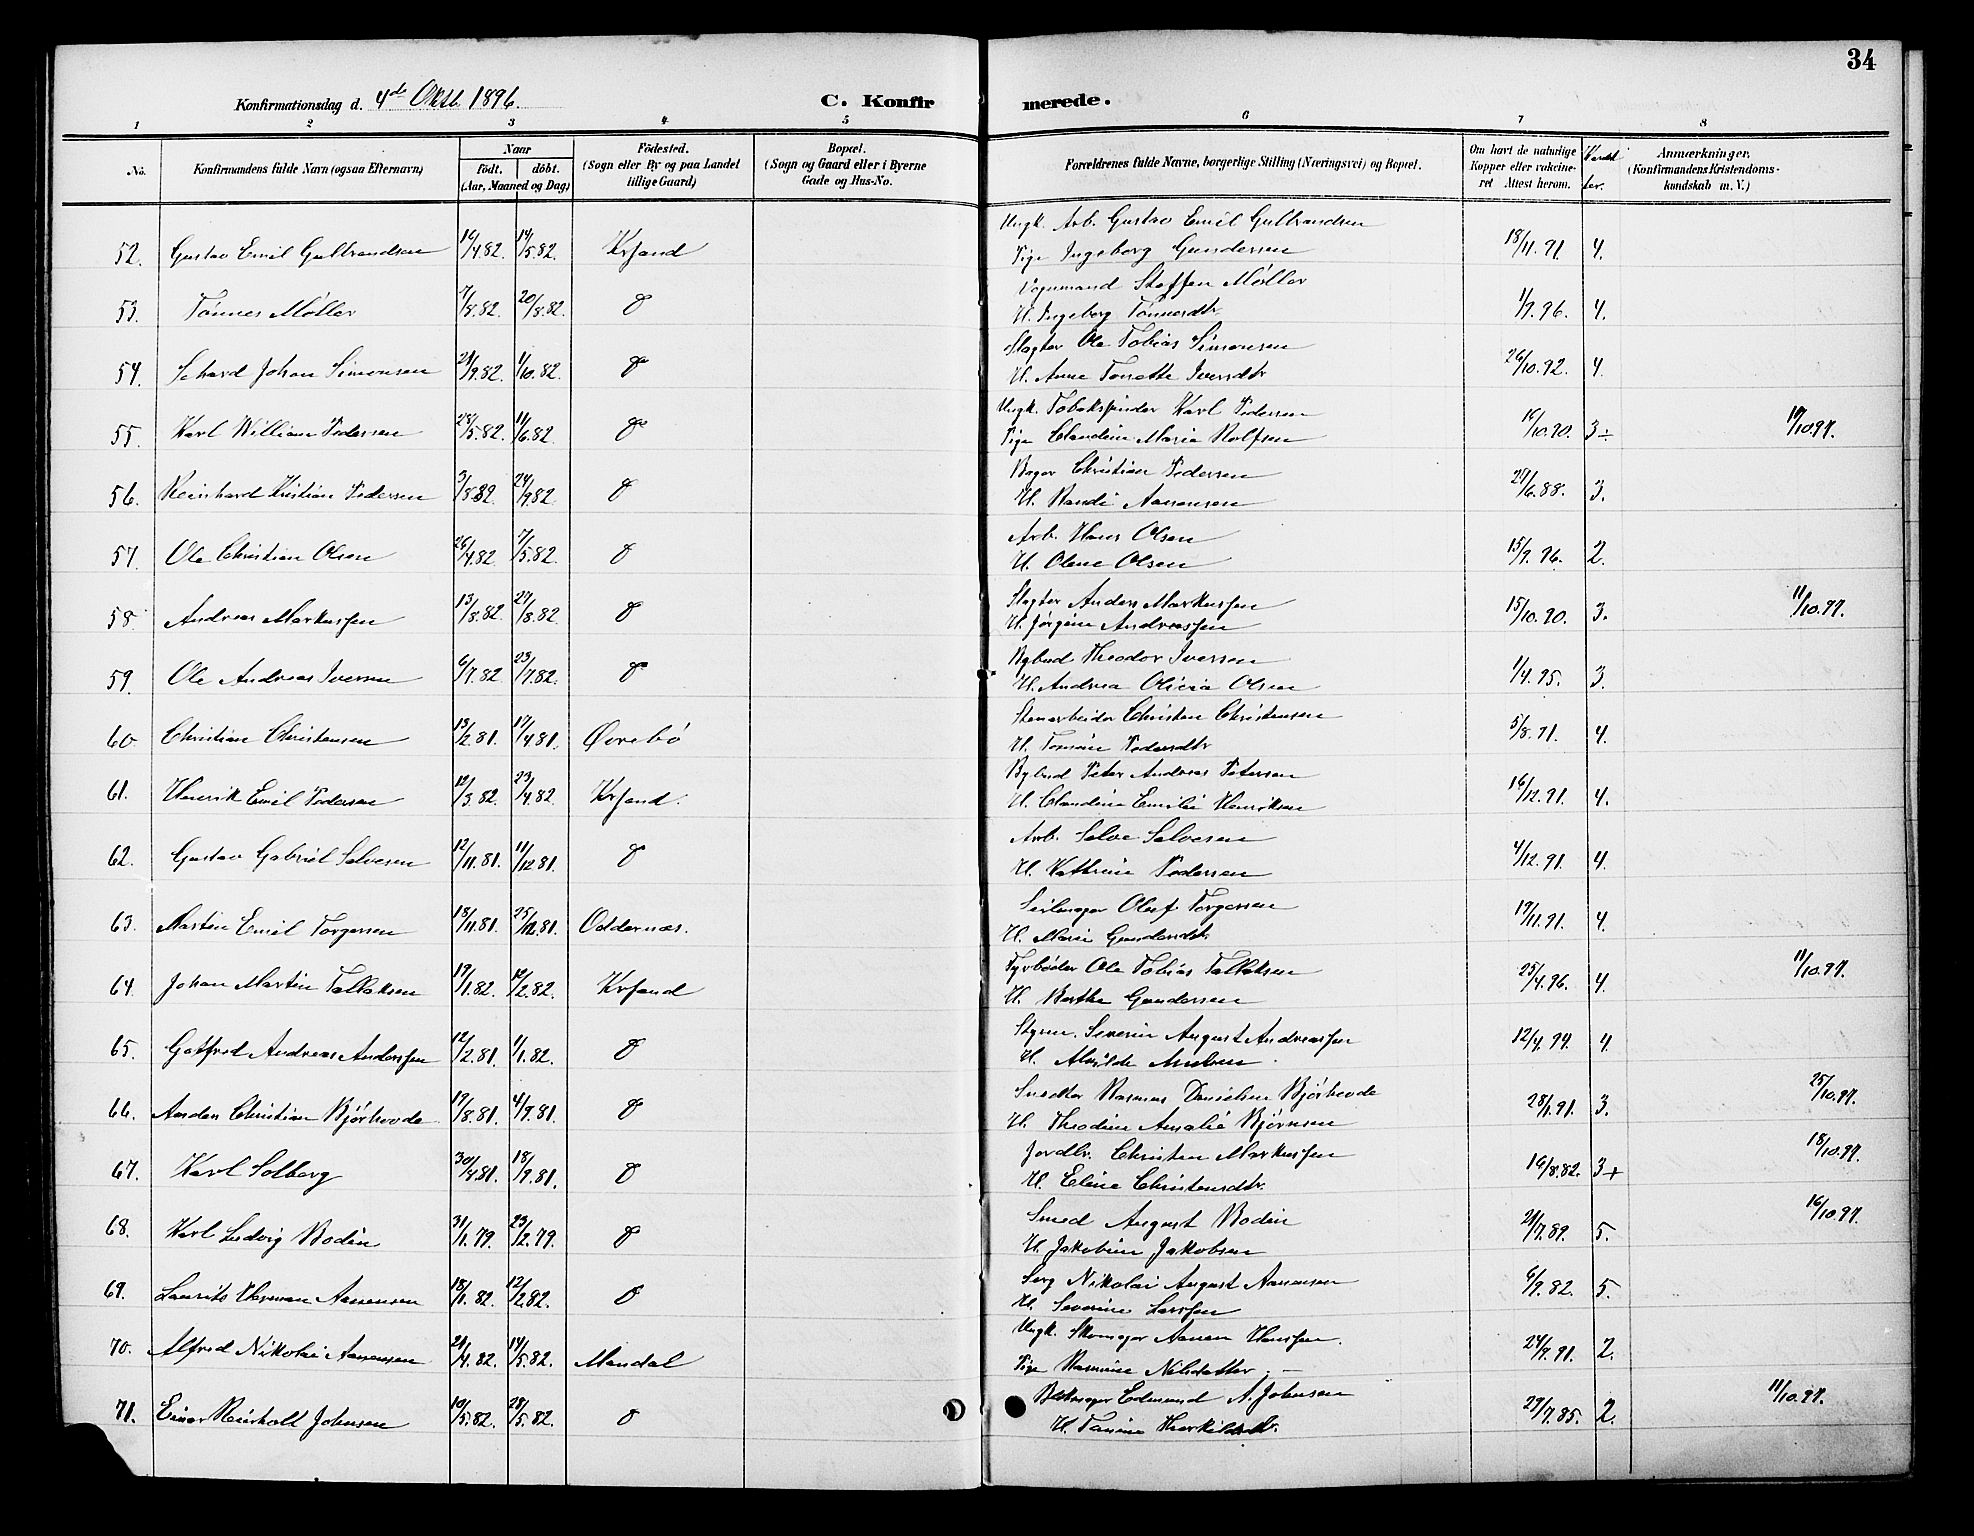 34
Konfirmationsdag d. 4de Oktb. 1896.
C. Konfirmerede.
1 2 3 4 5 6 7 8
No. Konfirmandens fulde Navn (ogsaa Efternavn) Naar født. døbt. (Aar, Maaned og Dag) Födested. (Sogn eller By og paa Landet tillige Gaard) Bopæl. (Sogn og Gaard eller i Byerne Gade og Hus-No. Forældrenes fulde Navne, borgerlige Stilling (Næringsvei) og Bopæl. Om havt de naturlige Kopper eller vakcineret Attest herom. Anmærkninger. (Konfirmandens Kristendomskundskab m. V.)
Ungk. Arb. Gustav Emil Gulbrandsen
52. Gustav Emil Gulbrandsen 16/4.82. 14/5.82. Krsand Pige Ingeborg Gundersen 18/11.91. 4.
Vognmand Steffen Møller
53. Tønnes Møller 7/8.82. 20/8.82. H. Ingeborg Tønnesdtr. 1/9.96. 4.
Slagter Ole Tobias Simonsen
54. Johan Simonsen 21/9.82. 1/10.82. H. Anne Tonette Iversdtr 26/10.92. 4.
Ungk. Tobaksspinder Karl Pedersen
55. Karl William Pedersen 28/5.82. 11/6.82. Pige Claudine Marie Rolfsen 16/10.90. 3÷ 19/10.97.
Bager Christian Pedersen
56. Reinhard Kristian Pedersen 3/8.82. 24/9.82. H. Randi Aanensen 27/6.88. 3.
Arb. Hans Olsen
57. Ole Christian Olsen 26/4.82. 7/5.82. H. Olene Olsen 15/9.96. 2.
Slagter Anders Markussen
58. Andreas Markussen 13/8.82. 27/8.82. H. Jørgine Andreassen 15/10.90. 3. 11/10.97.
Bybud Theodor Iversen
59. Ole Andreas Iversen 6/7.82 23/7.82. H. Andrea Olivia Olsen 1/4.95. 3.
Stenarbeider Christen Christensen
60. Christian Christensen 13/2.81. 17/4.81. Øvrebø H. Tomine Pedersdtr 5/8.91. 4.
Bybud Peter Andreas Petersen
61. Henrik Emil Pedersen 12/3.82. 23/4.82. Krsand. H. Claudine Emilie Henriksen 16/12.91. 4.
Arb. Salve Salvesen
62. Gustav Gabriel Salvesen 12/11.81. 11/12.81. H. Kathrine Pedersen 4/12.91. 4.
Seilmager Oluf Torgersen
63. Martin Emil Torgersen 18/11.81. 25/12.81. Oddernæs. H. Marie Gundersdtr. 19/11.91. 4.
Fyrbøder Ole Tobias Tallaksen
64. Johan Martin Tallaksen 19/1.82. 12/2.82. Krsand H. Berthe Gundersen 25/4.96. 4. 11/10.97.
Styrm. Severin August Andreassen
65. Gotfred Andreas Anderssen 12/2.81. 1/1.82. H. Alvilde 12/4.94. 4.
Smedker Rasmus Danielsen Bjørhovde
66. Anders Christian Bjørhovde 19/8.81. 4/9.81. H. Theodine Amalie Bjørnsen 28/1.91. 3. 25/10.97.
Jordbr. Christen Markussen
67. Karl Solberg 30/4.81. 18/9.81. H. Eline Christensdtr. 16/8.82. 3+ 18/10.97.
Smed August Bodin
68. Karl Ludvig Bodin 31/1.79. 23/2.79. H. Jakobine Jakobsen 21/7.89. 5. 16/10.97.
Serg Nikolai August Aanensen
69. Laurits Herman Aanensen 18/1.82. 12/2.82. H. Severine Larssen 6/9.82. 5.
Ungk. Skomager Aanen Hanssen.
70. Alfred Nikolai Aanensen 21/4.82. 14/5.82. Mandal Pige Rasmine Nilsdatter. 24/9.91. 2.
Edmund A. Johnsen
71. Einar Reinholt Johnsen 10/5.82. 28/5.82. H. Tomine Therkildsdtr. 27/7.85. 2. 11/10.97.